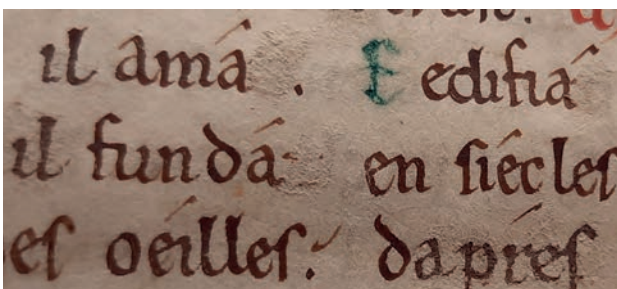 il amá . E edifiá
il fundá en siécles
es oéilles. daprés